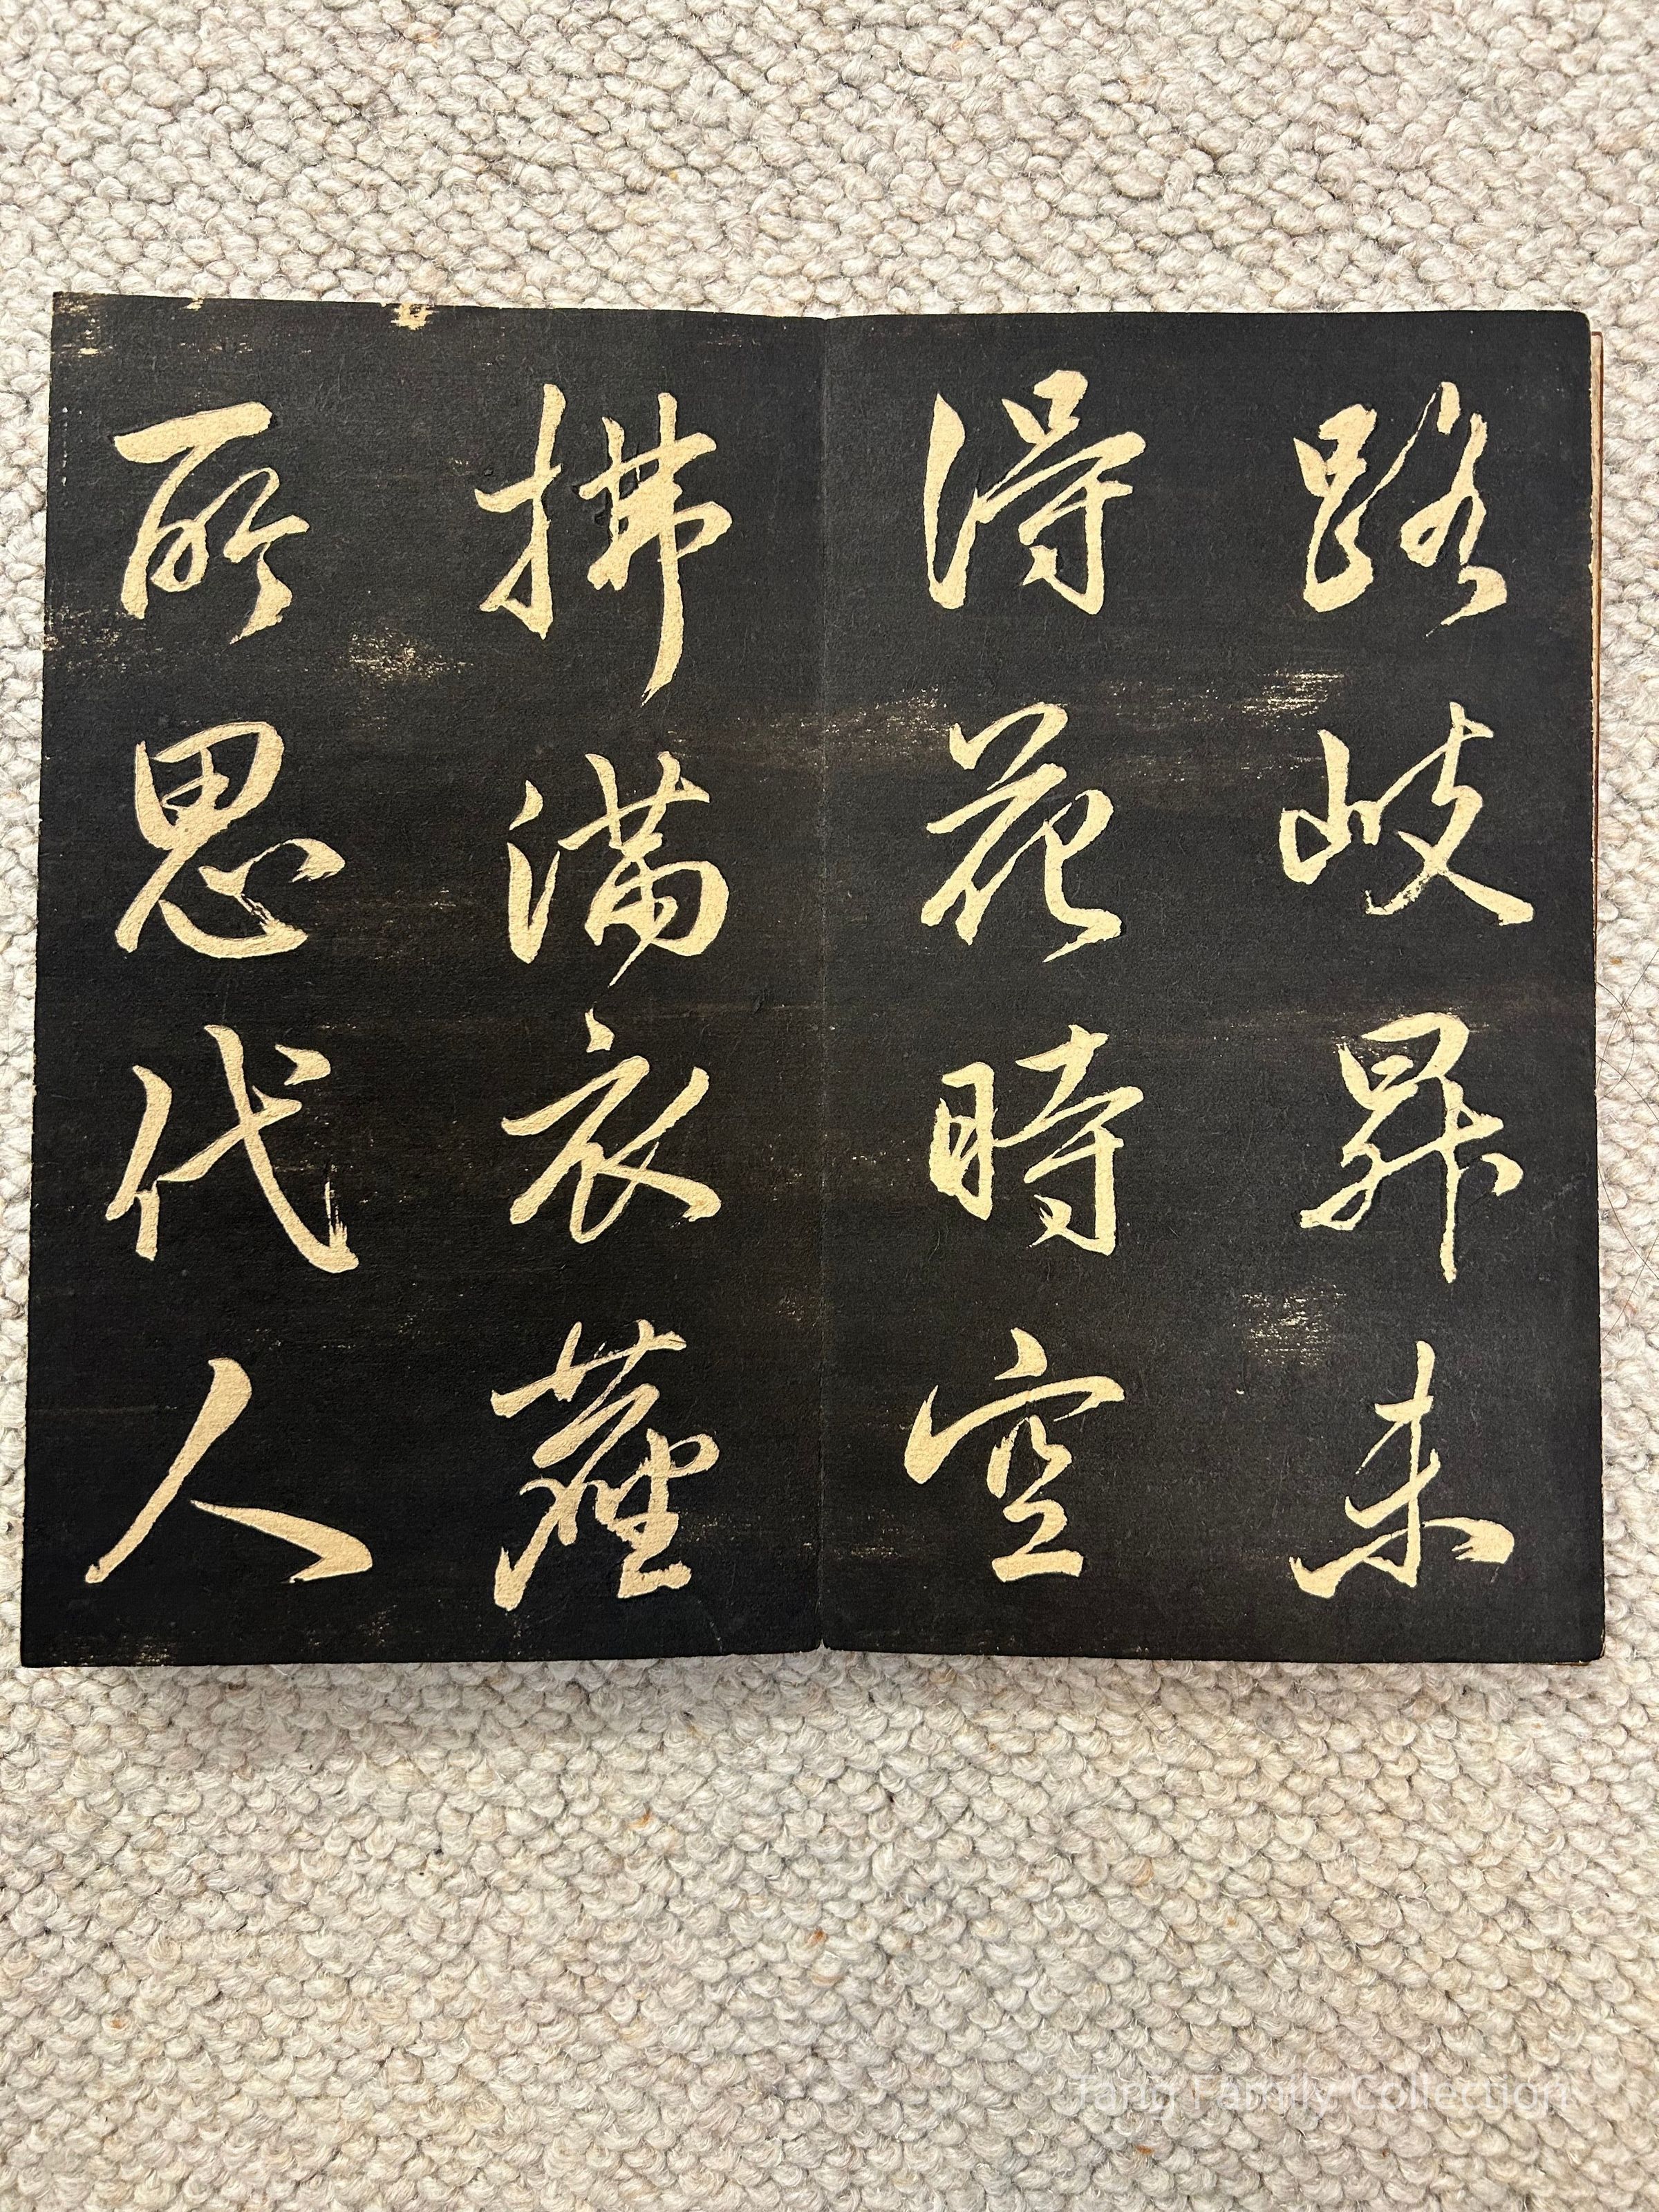 路岐昇未
得花時空
拂滿衣
所思代人
Tang Family Collection